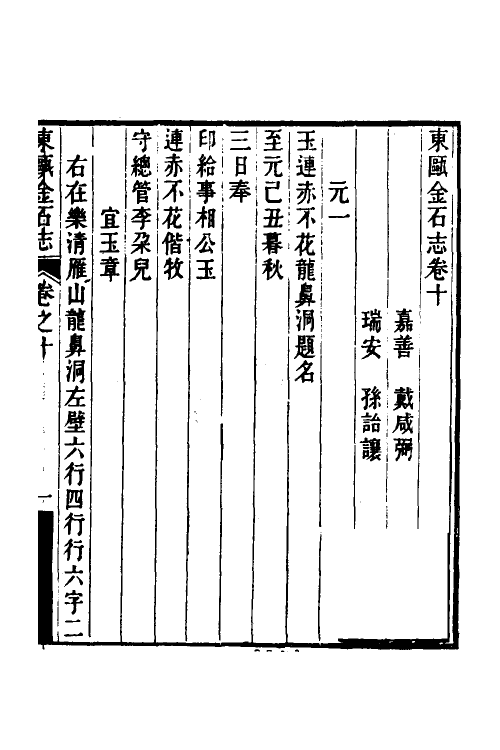 東甌金石志卷十
嘉善　戴咸弼
瑞安　孫詒讓
元一
玉連赤不花龍鼻洞題名
至元己丑暮秋
三日奉
印給事相公玉
連赤不花偕牧
守總管李朶兒
宜玉章
右在樂清雁山龍鼻洞左壁六行四行行六字二
東甌金石志
卷之十
一